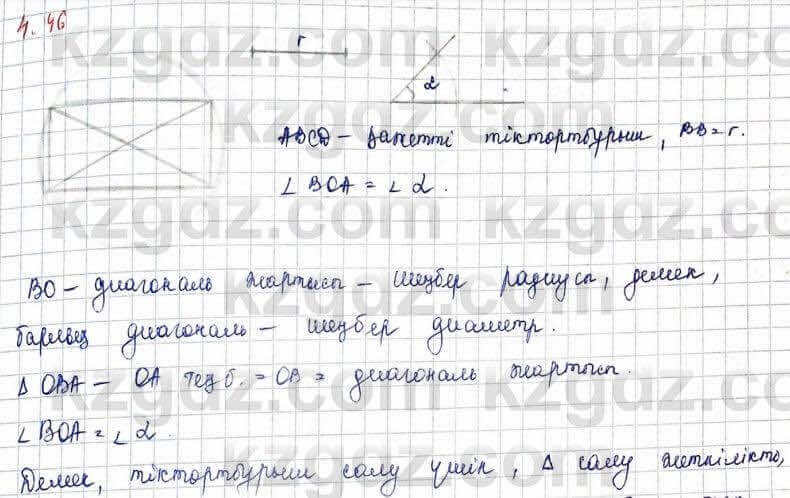 4.46
r
α
ABCD – залетті тіктөртбұрыш, BB = r.
∠ BOA = ∠ α.
BO – диагональ жартысы – шеңбер радиусы, демек,
барлық диагональ – шеңбер диаметр.
Δ OBA – OA тең б. = OB = диагональ жартысы.
∠ BOA = ∠ α.
Демек, тіктөртбұрыш салу үшін, Δ салу жеткілікті,
kzgdz.com